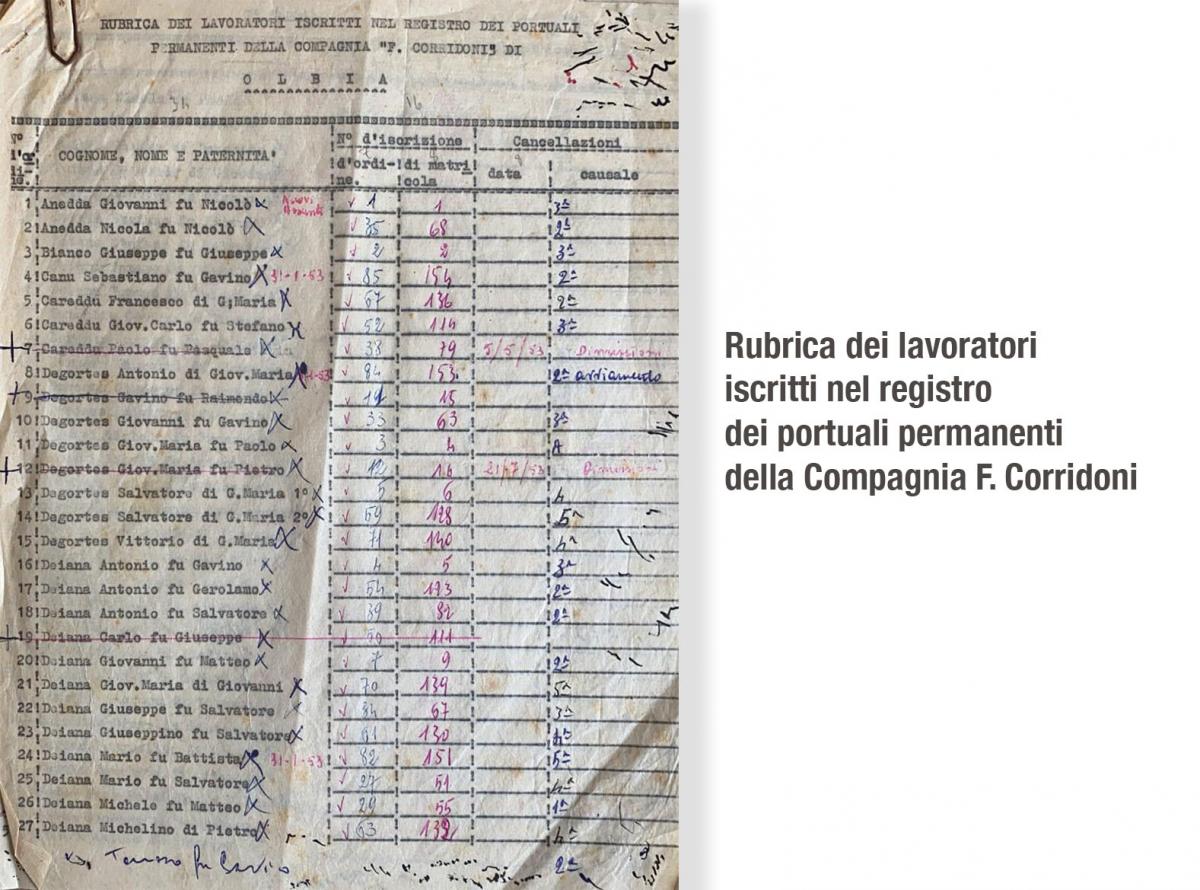 RUBRICA DEI LAVORATORI ISCRITTI NEL REGISTRO DEI PORTUALI
PERMANENTI DELLA COMPAGNIA "F. CORRIDONI" DI
O L B I A
34 16
N° COGNOME, NOME E PATERNITA' N° d'iscrizione Cancellazioni
d'ordi-ne. di matricola data causale
1 Anedda Giovanni fu Nicolò 1 1 3ª
2 Anedda Nicola fu Nicolò 35 68 2ª
3 Bianco Giuseppe fu Giuseppe 2 2 3ª
4 Canu Sebastiano fu Gavino 31-1-53 85 154 2ª
5 Careddu Francesco di G;Maria 67 136 2ª
6 Careddu Giov.Carlo fu Stefano 52 114 3ª
7 Careddu Paolo fu Pasquale 38 79 5/5/53 Dimissioni
8 Degortes Antonio di Giov.Maria 84 153 2ª avviamento
9 Degortes Gavino fu Raimondo 15
10 Degortes Giovanni fu Gavino 33 63 3ª
11 Degortes Giov.Maria fu Paolo 3 4
12 Degortes Giov.Maria fu Pietro 12 16 21/7/53 Dimissioni
13 Degortes Salvatore di G.Maria 1° 5 6
14 Degortes Salvatore di G.Maria 2° 59 128 5ª
15 Degortes Vittorio di G.Maria 71 140 4ª
16 Deiana Antonio fu Gavino 4 5 3ª
17 Deiana Antonio fu Gerolamo 54 2ª
18 Deiana Antonio fu Salvatore 39 82 2ª
19 Deiana Carlo fu Giuseppe 50 111
20 Deiana Giovanni fu Matteo 7 9 2ª
21 Deiana Giov.Maria di Giovanni 70 139 5ª
22 Deiana Giuseppe fu Salvatore 34 67 3ª
23 Deiana Giuseppino fu Salvatore 61 130 4ª
24 Deiana Mario fu Battista 31-1-53 82 151 5ª
25 Deiana Mario fu Salvatore 27 51 4ª
26 Deiana Michele fu Matteo 29 55 1ª
27 Deiana Michelino di Pietro 63 132 4ª
2ª
Rubrica dei lavoratori
iscritti nel registro
dei portuali permanenti
della Compagnia F. Corridoni